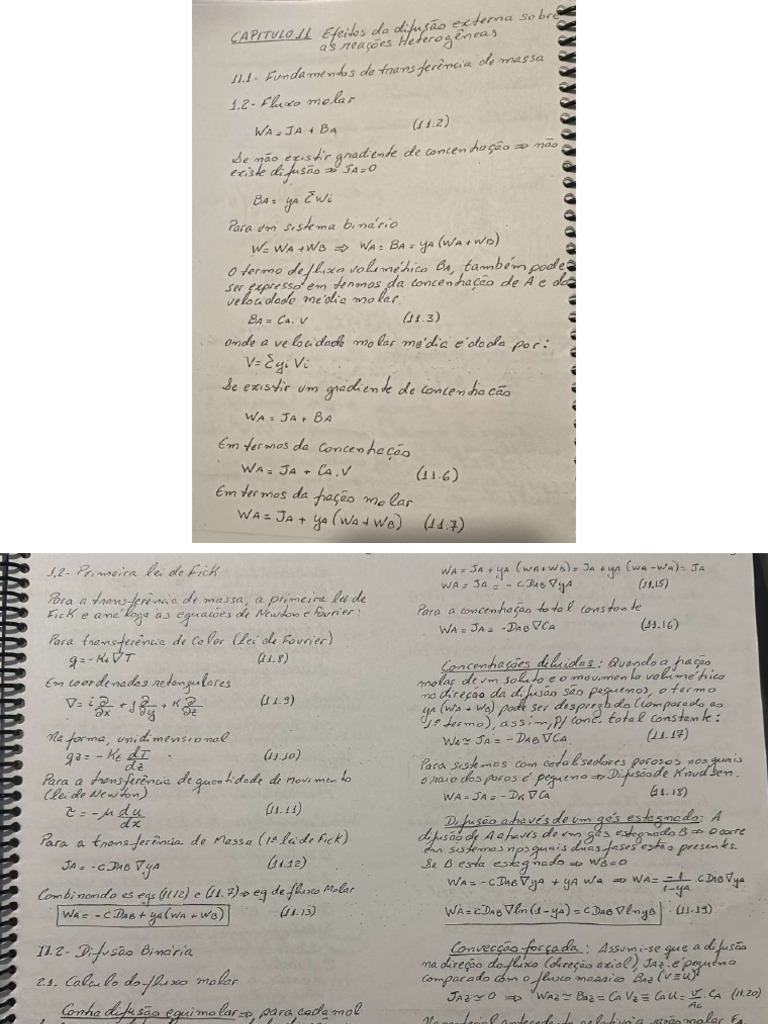 CAPITULO 11 Efeitos da difusão externa sobre
as reações Heterogêneas
11.1- Fundamentos de transferência de massa
1.2- Fluxo molar
WA = JA + BA (11.2)
Se não existir gradiente de concentração ⇒ não
existe difusão ⇒ JA=0
BA = yA ΣWi
Para um sistema binário
W = WA + WB ⇒ WA = BA = yA (WA + WB)
O termo de fluxo volumétrico BA, também pode
ser expresso em termos da concentração de A e da
velocidade média molar.
BA = CA.V (11.3)
onde a velocidade molar média é dada por:
V = Σyi Vi
Se existir um gradiente de concentracão
WA = JA + BA
Em termos da concentração
WA = JA + CA.V (11.6)
Em termos da fração molar
WA = JA + yA (WA + WB) (11.7)
1.2- Primeira lei de Fick
Para a transferência de massa, a primeira lei de
Fick e análoga as equações de Newton e Fourier:
Para transferência de Calor (lei de Fourier)
q = -Kt ∇T (11.8)
Em coordenadas retangulares
∇ = i ∂/∂x + j ∂/∂y + K ∂/∂z (11.9)
Na forma, unidimensional
qz = -Kt dT/dz (11.10)
Para a transferência de quantidade de movimento
(lei de Newton)
τ = -μ du/dx (11.11)
Para a transferência de Massa (1ª lei de Fick)
JA = -c DAB ∇yA (11.12)
Combinando es eqs (11.12) e (11.7) ⇒ eq de fluxo Molar
WA = -c DAB + yA (WA + WB) (11.13)
11.2- Difusão Binária
2.1. Calculo do fluxo molar
Contra difusão equimolar ⇒ para cada mol
WA = JA + yA (WA + WB) = JA + yA (WA - WA) = JA
WA = JA = -c DAB ∇yA (11.15)
Para a concentração total constante
WA = JA = -DAB ∇CA (11.16)
Concentrações diluídas: Quando a fração
molar de um soluto e o movimento volumétrico
na direção da difusão são pequenos, o termo
yA (WA + WB) pode ser desprezado (comparado ao
1º termo), assim, p/ conc. total constante:
WA ≃ JA = -DAB ∇CA (11.17)
Para sistemas com catalisadores porosos nos quais
o raio dos poros é pequeno ⇒ Difusão de Knudsen.
WA = JA = -DK ∇CA (11.18)
Difusão através de um gás estagnado: A
difusão de A através de um gás estagnado B ⇒ Ocorre
em sistemas nos quais duas fases estão presentes.
Se B esta estagnado ⇒ WB=0
WA = -c DAB ∇yA + yA WA ⇒ WA = -1/1-yA . c DAB ∇yA
WA = c DAB ∇ln (1-yA) = c DAB ∇ln yB (11.19)
Convecção forçada: Assumi-se que a difusão
na direção do fluxo (direção axial), JAZ é pequeno
comparado com o fluxo mássico BAZ (V≡U)
JAZ ≃ 0 ⇒ WAZ ≃ BAZ = CA VZ ≡ CA U = v/AC . CA (11.20)